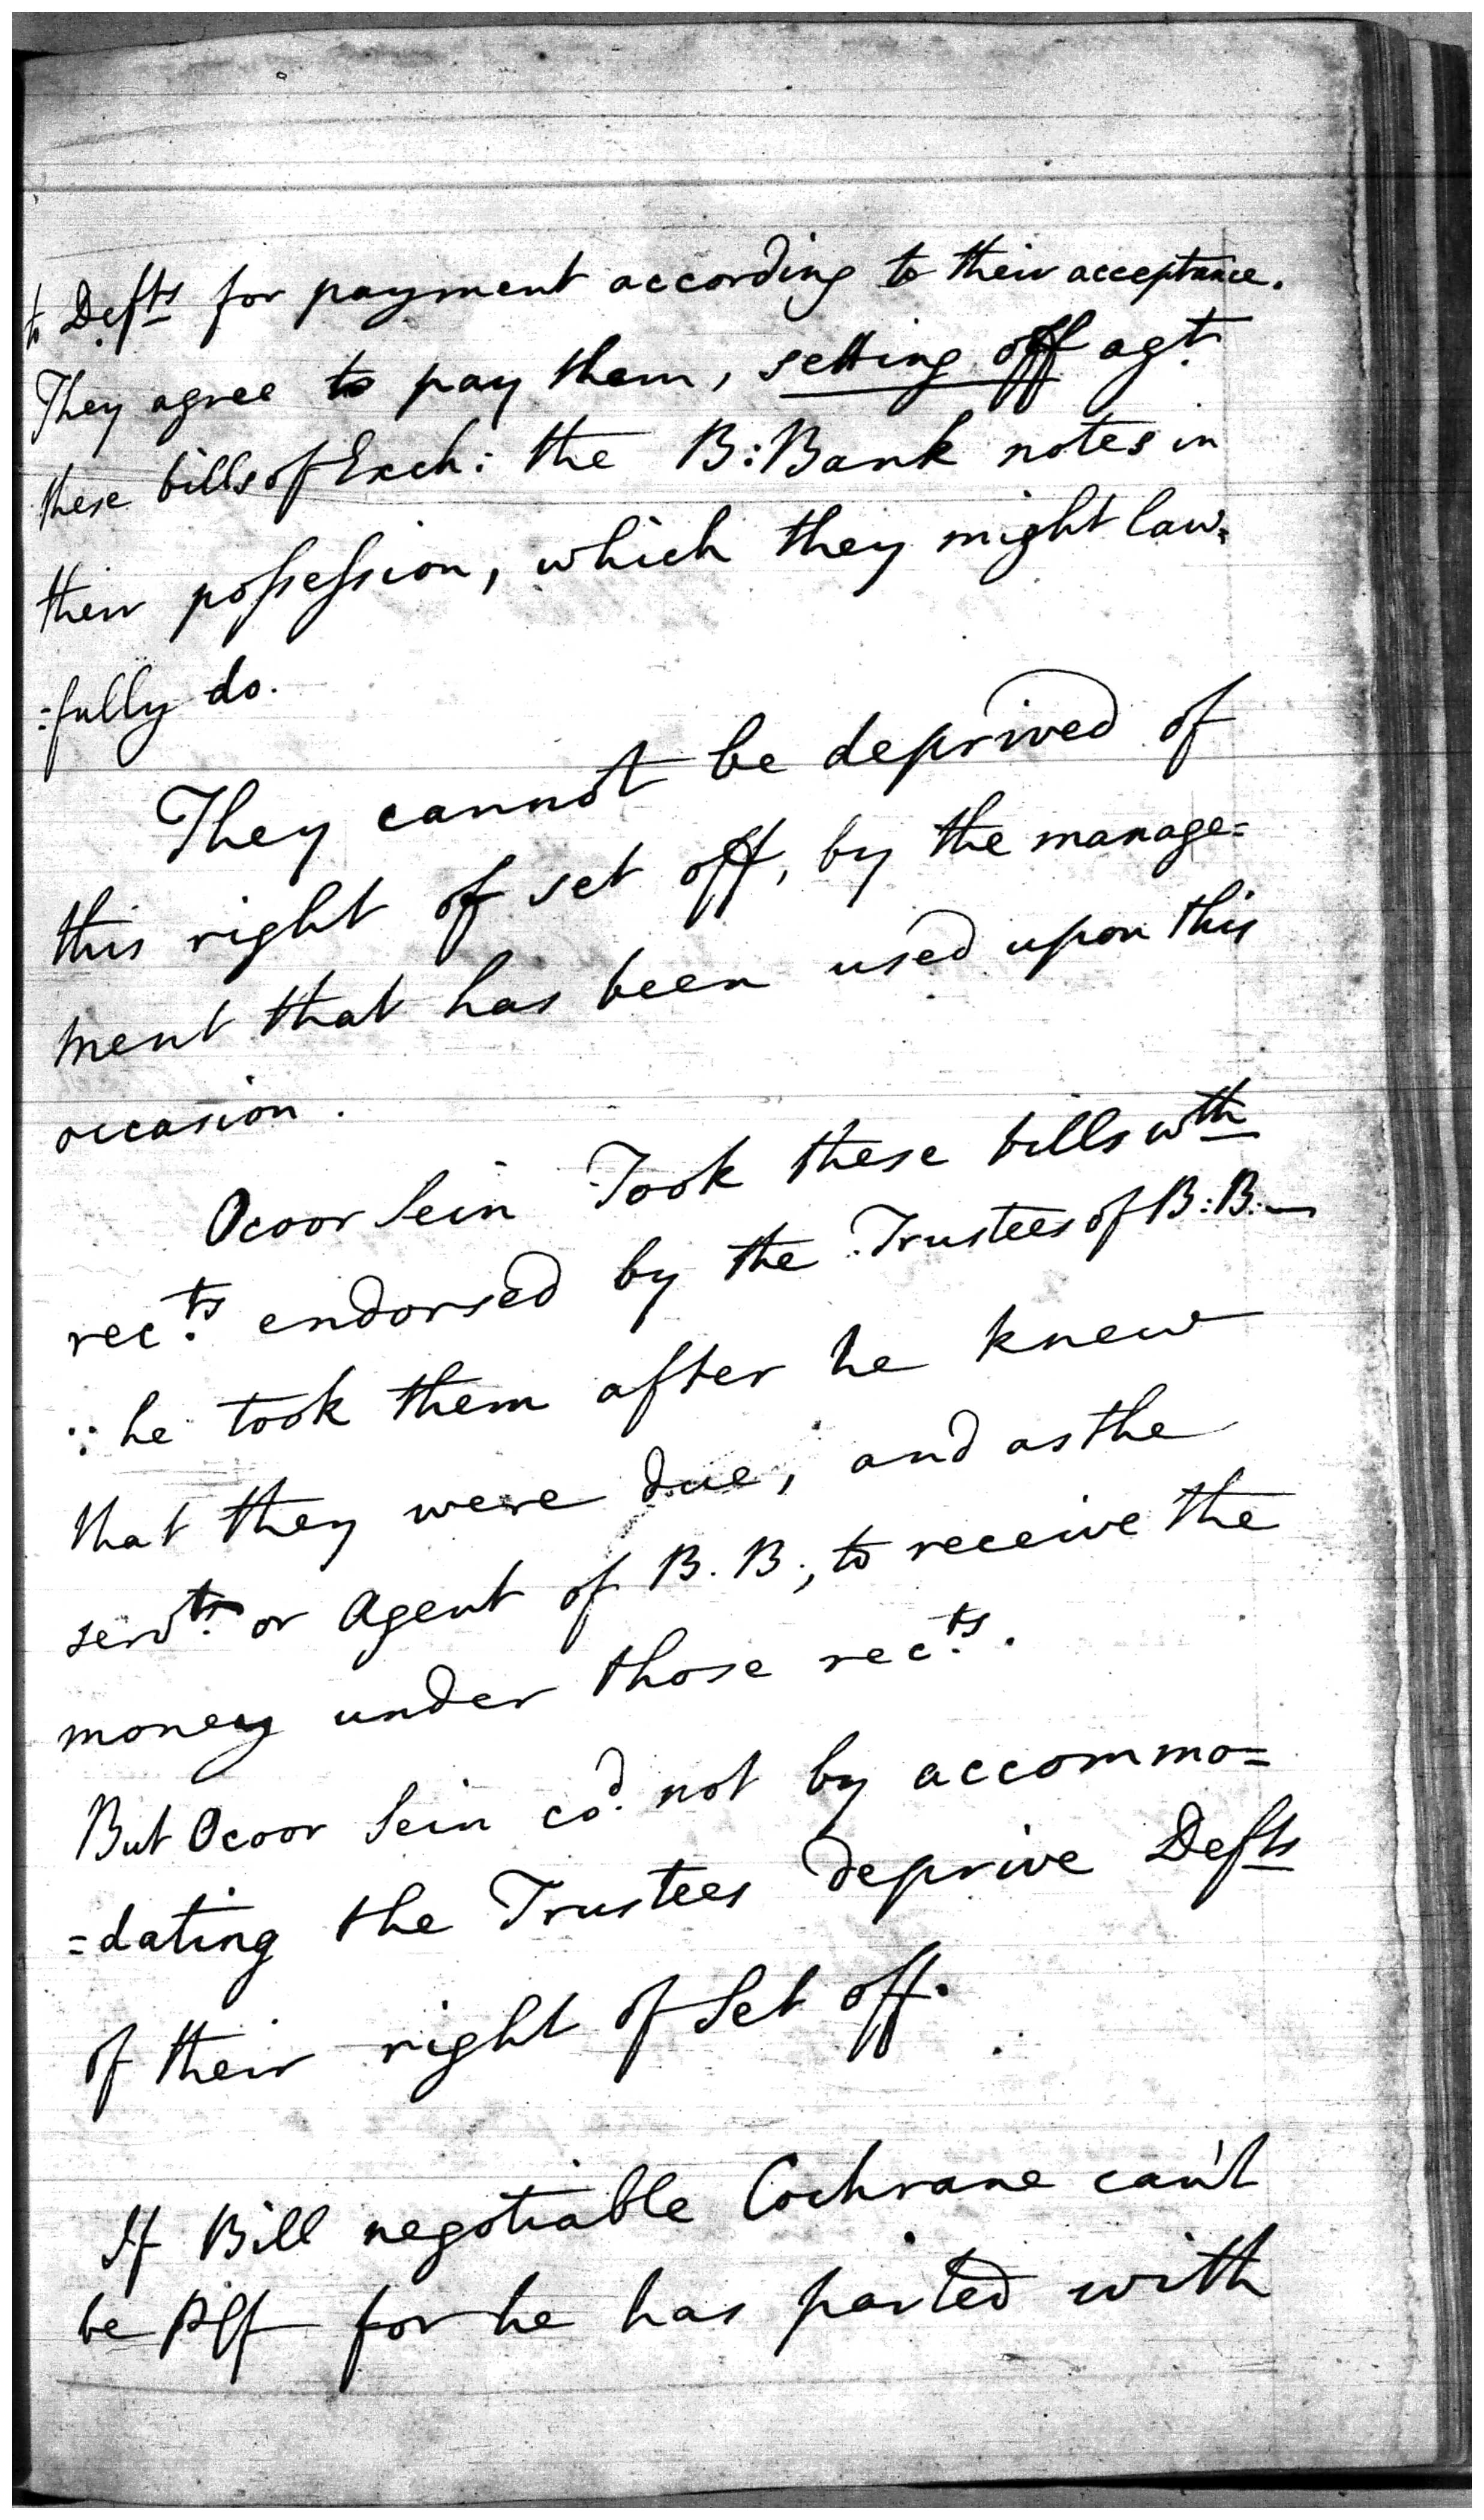 to Defts for payment according to their acceptance.
They agree to pay them, setting off agt.
these bills of Exch: the B: Bank notes in
their poſseſsion, which they might law=
=fully do.
They cannot be deprived of
this right of set off, by the manage=
ment that has been used upon this
occasion.
Ocoor Sein Took these bills wth
rects. endorsed by the Trustees of B:B:—
∵ he took them after he knew
that they were due, and as the
servts. or Agent of B. B., to receive the
money under those rects.
But Ocoor Sein cod. not by accommo=
=dating the Trustees deprive Defts
of their right of Set off.
If Bill negotiable Cochrane can't
be Plf for he has parted with